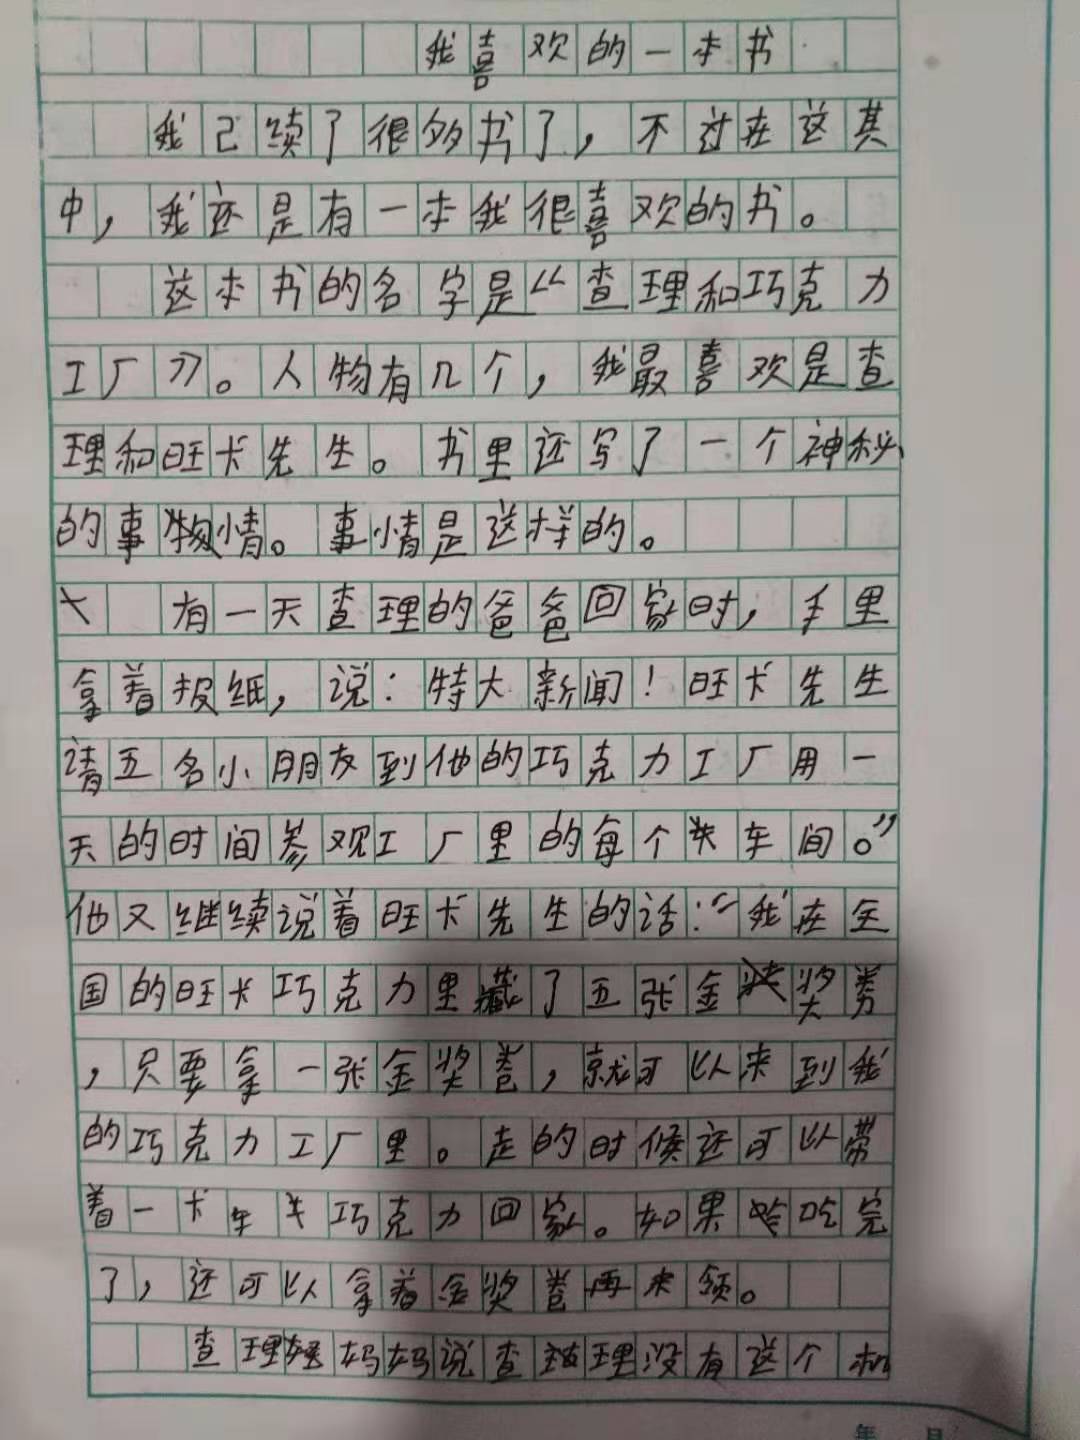 我喜欢的一本书
我已续了很多书了，不过在这其
中，我还是有一本我很喜欢的书。
这本书的名字是《查理和巧克力
工厂》。人物有几个，我最喜欢是查
理和旺卡先生。书里还写了一个神秘
的事物情。事情是这样的。
有一天查理的爸爸回家时，手里
拿着报纸，说：特大新闻！旺卡先生
请五名小朋友到他的巧克力工厂用一
天的时间参观工厂里的每个车间。”
他又继续说着旺卡先生的话：“我在全
国的旺卡巧克力里藏了五张金奖券
，只要拿一张金奖卷，就可以来到我
的巧克力工厂里。走的时候还可以带
着一卡车巧克力回家。如果吃完
了，还可以拿着金奖卷再来领。
查理妈妈说查理没有这个机
年 月